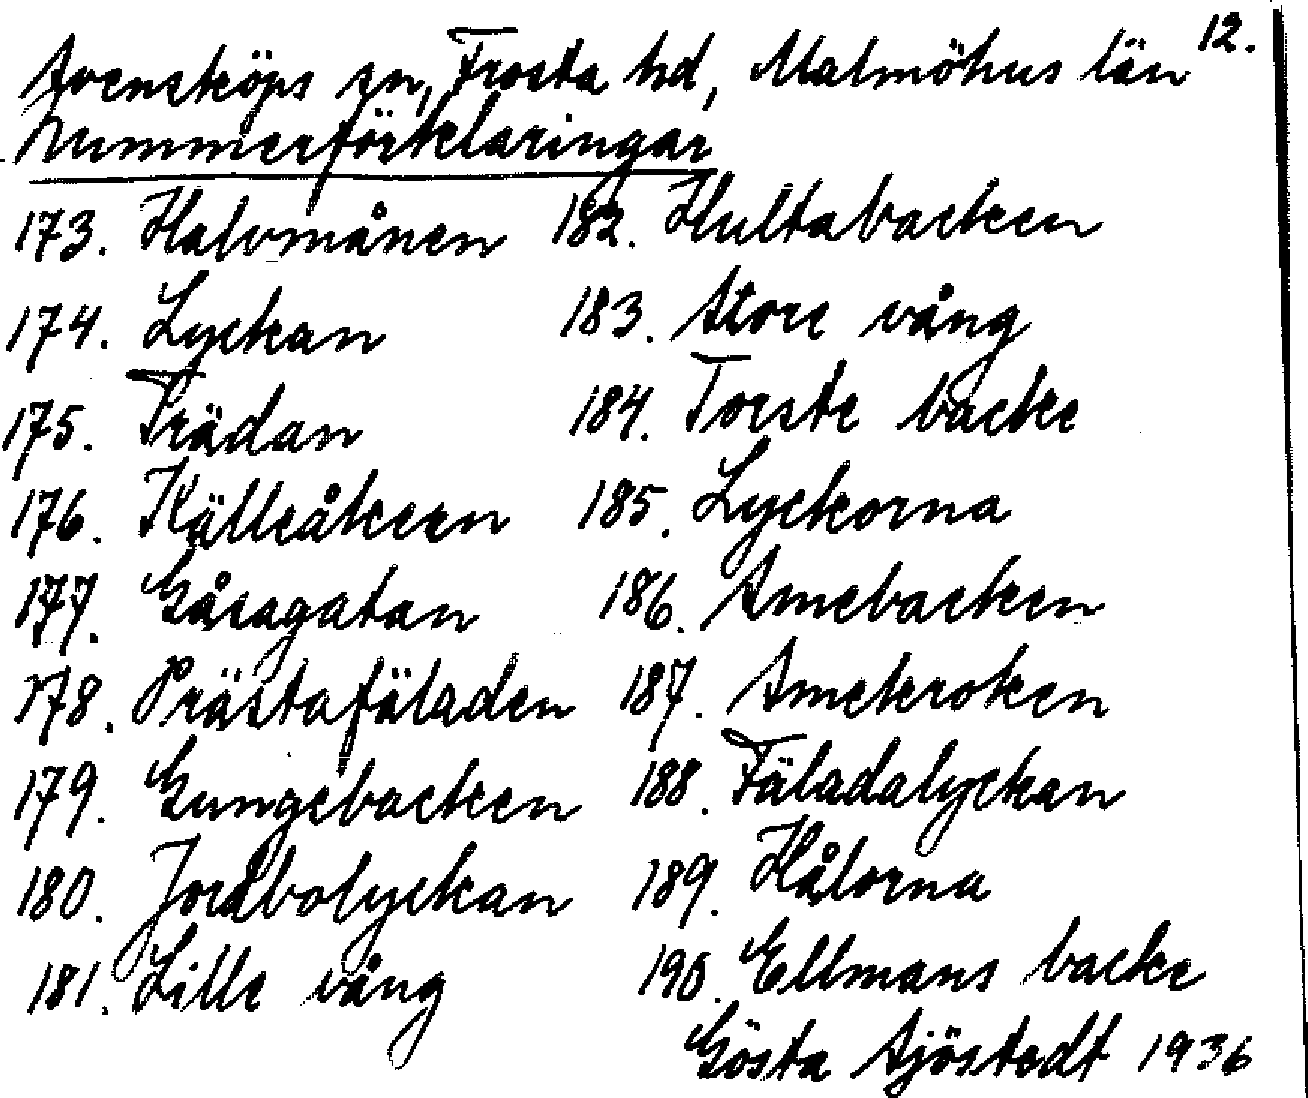 12.
Svensköps sn, Frosta hd, Malmöhus län
Nummerförklaringar
173. Halvmånen
174. Lyckan
175. Trädan
176. Källeåkern
177. Gåsagatan
178. Prästafäladen
179. Gungebacken
180. Jordbolyckan
181. Lille vång
182. Hultabacken
183. Store vång
184. Torste backe
185. Lyckorna
186. Smebacken
187. Smekroken
188. Fäladalyckan
189. Hålorna
190. Ellmans backe
Gösta Sjöstedt 1936